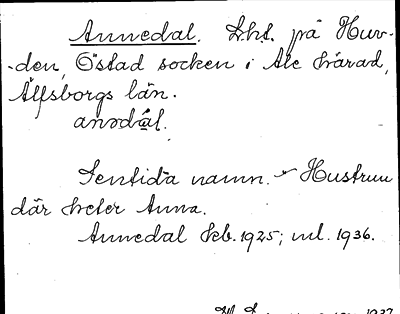 Annedal. Lht. på Hurv-
-den, Östad socken i Ale härad,
Älfsborgs län.
anədál.
Sentida namn. Hustrun
där heter Anna.
Annedal kb. 1925; ml. 1936.
1937